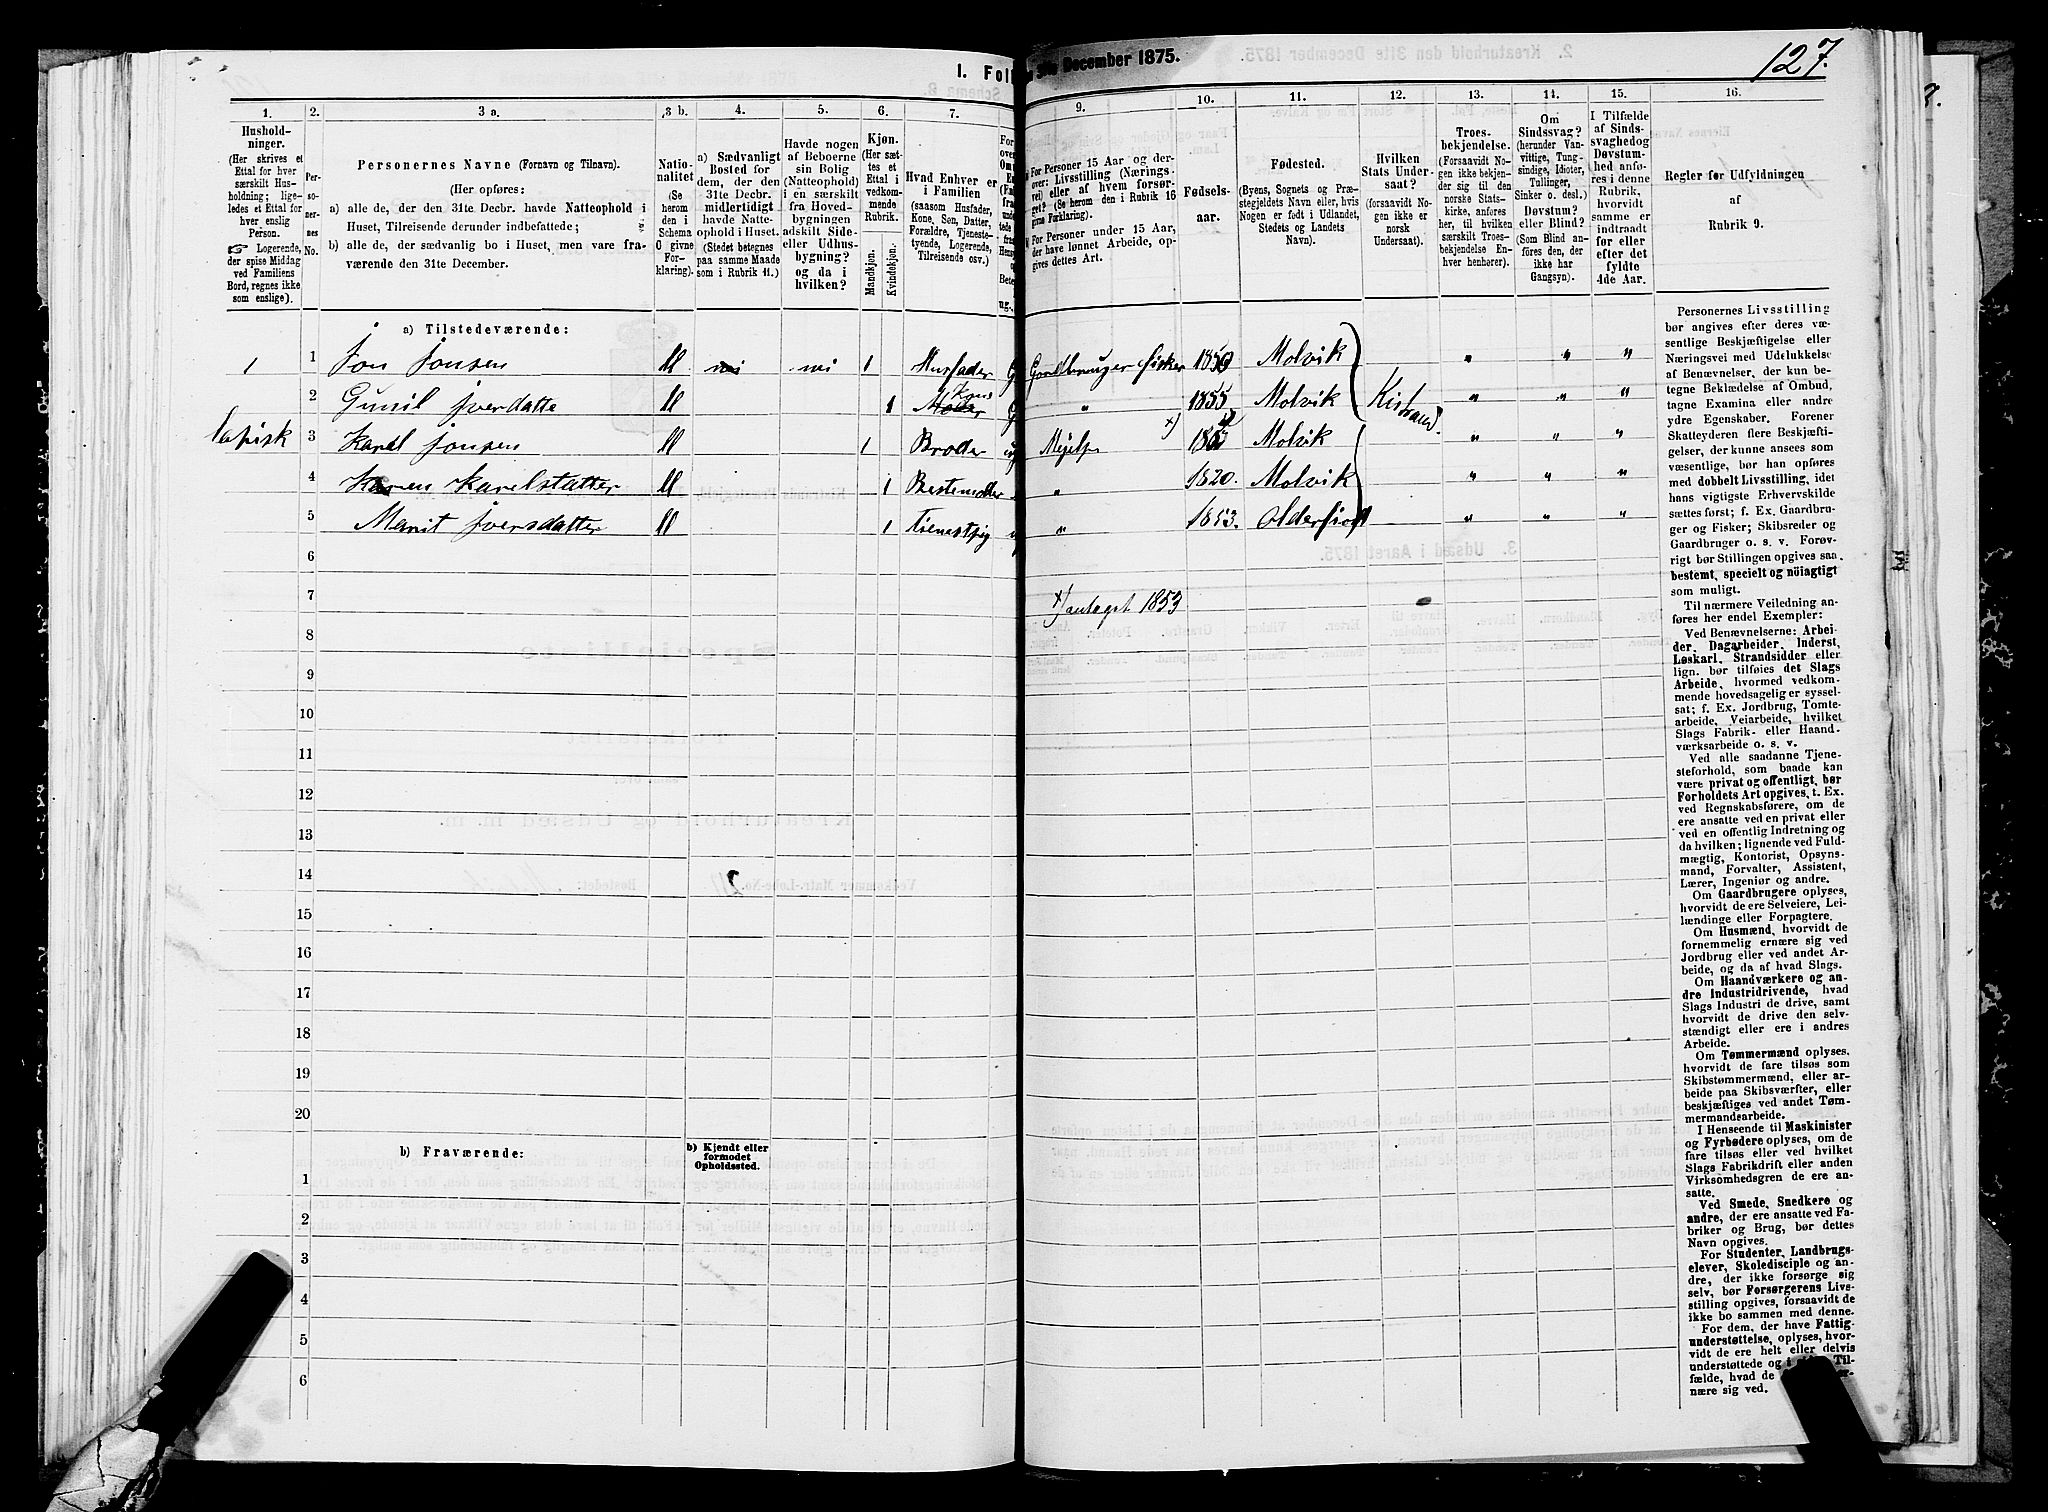 127.
I. Fol
31te December 1875.
1. 2. 3 a. 3 b. 4. 5. 6. 7. 9. 10. 11. 12. 13. 14. 15. 16.
Hushold-
ninger.
(Her skrives et
Ettal for hver
særskilt Hus-
holdning; lige-
ledes et Ettal for
hver enslig
Person.
☞ Logerende,
der spise Middag
ved Familiens
Bord, regnes ikke
som enslige).
Per-
so-
ner-
nes
No.
Personernes Navne (Fornavn og Tilnavn).
(Her opføres:
a) alle de, der den 31te Decbr. havde Natteophold i
Huset, Tilreisende derunder indbefattede;
b) alle de, der sædvanlig bo i Huset, men vare fra-
værende den 31te December.
Natio-
nalitet
(Se
herom
den i
Schema
6 givne
For-
klaring).
a) Sædvanligt
Bosted for
dem, der den
31te Decbr.
midlertidigt
havde Natte-
ophold i Huset.
(Stedet betegnes
paa samme Maade
som i Rubrik 11.)
Havde nogen
af Beboerne
sin Bolig
(Natteophold)
i en særskilt
fra Hoved-
bygningen
adskilt Side-
eller Udhus-
bygning?
og da i
hvilken?
Kjøn.
(Her sæt-
tes et
Ettal i
vedkom-
mende
Rubrik.
Mandkjøn.
Kvindekjøn.
Hvad Enhver er
i Familien
(saasom Husfader,
Kone, Søn, Datter,
Forældre, Tjeneste-
tyende, Logerende,
Tilreisende osv.)
For Personer 15 Aar og der-
over: Livsstilling (Nærings-
vei) eller af hvem forsør-
get? (Se herom den i Rubrik 16
givne Forklaring).
For Personer under 15 Aar,
der have lønnet Arbeide, op-
gives dettes Art.
Fødsels-
aar.
Fødested.
(Byens, Sognets og Præ-
stegjeldets Navn eller, hvis
Nogen er født i Udlandet,
Stedets og Landets
Navn).
Hvilken
Stats Under-
saat?
(forsaavidt No-
gen ikke er
norsk
Undersaat).
Troes-
bekjendelse.
(Forsaavidt No-
gen ikke bekjen-
der sig til den
norske Stats-
kirke, anføres
her, til hvilken
særskilt Troes-
bekjendelse En-
hver henhører).
Om
Sindssvag?
(herunder Van-
vittige, Tung-
sindige, Idioter,
Tullinger,
Sinker o. desl.)
Døvstum?
eller Blind?
(Som Blind an-
føres den, der
ikke har
Gangsyn).
I Tilfælde
af Sinds-
svaghed og
Døvstum-
hed anfø-
res i denne
Rubrik,
hvorvidt
samme er
indtraadt
før eller
efter det
fyldte
4de Aar.
Regler for Udfyldningen
af
Rubrik 9.
a) Tilstedeværende:
1 1 Jon Jonsen ni 1 Husfader Gaardbruger fisker Molvik " " "
2 Gunil 1 Kone Moder " 1855 Molvik Kistrand. " " "
lapisk 3 Karel Jonsen 1 Broder x) Molvik " " "
4 Karen Karelstatter 1 Bestemoder " 1820. Molvik " " "
5 Marit Iversdatter 1 " 1853. " " "
6
7 x) antaget 1853
8
9
10
11
12
13
14
15
16
17
18
19
20
b) Fraværende:
b) Kjendt eller
formodet
Opholdssted.
1
2
3
4
5
6
Personernes Livsstilling
bør angives efter deres væ-
sentlige Beskjæftigelse eller
Næringsvei med Udelukkelse
af Benævnelser, der kun be-
tegne Beklædelse af Ombud,
tagne Examina eller andre
ydre Egenskaber. Forener
Skatteyderen flere Beskjæfti-
gelser, der kunne ansees som
væsentlige, bør han opføres
med dobbelt Livsstilling, idet
hans vigtigste Erhvervskilde
sættes først; f. Ex. Gaardbru-
ger og Fisker; Skibsreder og
Gaardbruger o. s. v. Forøv-
rigt bør Stillingen opgives saa
bestemt, specielt og nøiagtigt
som muligt.
Til nærmere Veiledning an-
føres her endel Exempler:
Ved Benævnelserne: Arbei-
der, Dagarbeider, Inderst,
Løskarl, Strandsidder eller
lign. bør tilføies det Slags
Arbeide, hvormed vedkom-
mende hovedsagelig er syssel-
sat; f. Ex. Jordbrug, Tomte-
arbeide, Veiarbeide, hvilket
Slags Fabrik- eller Haand-
værksarbeide o. s. v.
Ved alle saadanne Tjene-
steforhold, som baade kan
være privat og offentligt, bør
Forholdets Art opgives, t. Ex.
ved Regnskabsførere, om de
ere ansatte ved en privat eller
ved en offentlig Indretning og
da hvilken; lignende ved Fuld-
mægtig, Kontorist, Opsyns-
mand, Forvalter, Assistent,
Lærer, Ingeniør og andre.
Om Gaardbrugere oplyses,
hvorvidt de ere Selveiere, Lei-
lændinge eller Forpagtere.
Om Husmænd, hvorvidt de
fornemmelig ernære sig ved
Jordbrug eller ved andet Ar-
beide, og da af hvad Slags.
Om Haandværkere og an-
dre Industridrivende, hvad
Slags Industri de drive, samt
hvorvidt de drive den selv-
stændigt eller ere i andres
Arbeide.
Om Tømmermænd oplyses,
hvorvidt de fare tilsøs som
Skibstømmermænd, eller ar-
beide paa Skibsværfter, eller
beskjæftiges ved andet Tøm-
mermandsarbeide.
I Henseende til Maskinister
og Fyrbødere oplyses, om de
fare tilsøs eller ved hvilket
Slags Fabrikdrift eller anden
Virksomhedsgren de ere an-
satte.
Ved Smede, Snedkere og
andre, der ere ansatte ved Fa-
briker og Brug, bør dettes
Navn opgives.
For Studenter, Landbrugs-
elever, Skoledisciple og an-
dre, der ikke forsørge sig
selv, bør Forsørgerens Livs-
stilling opgives, forsaavidt de
ikke bo sammen med denne.
For dem, der have Fattig-
understøttelse, oplyses, hvor-
vidt de ere helt eller delvis
understøttede og i Til-
fælde, hvad de
nære sig ved.